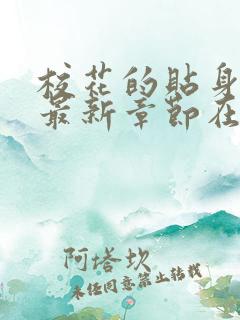 校花的贴身
最新章节在
阿塔坎
未经同意禁止转载